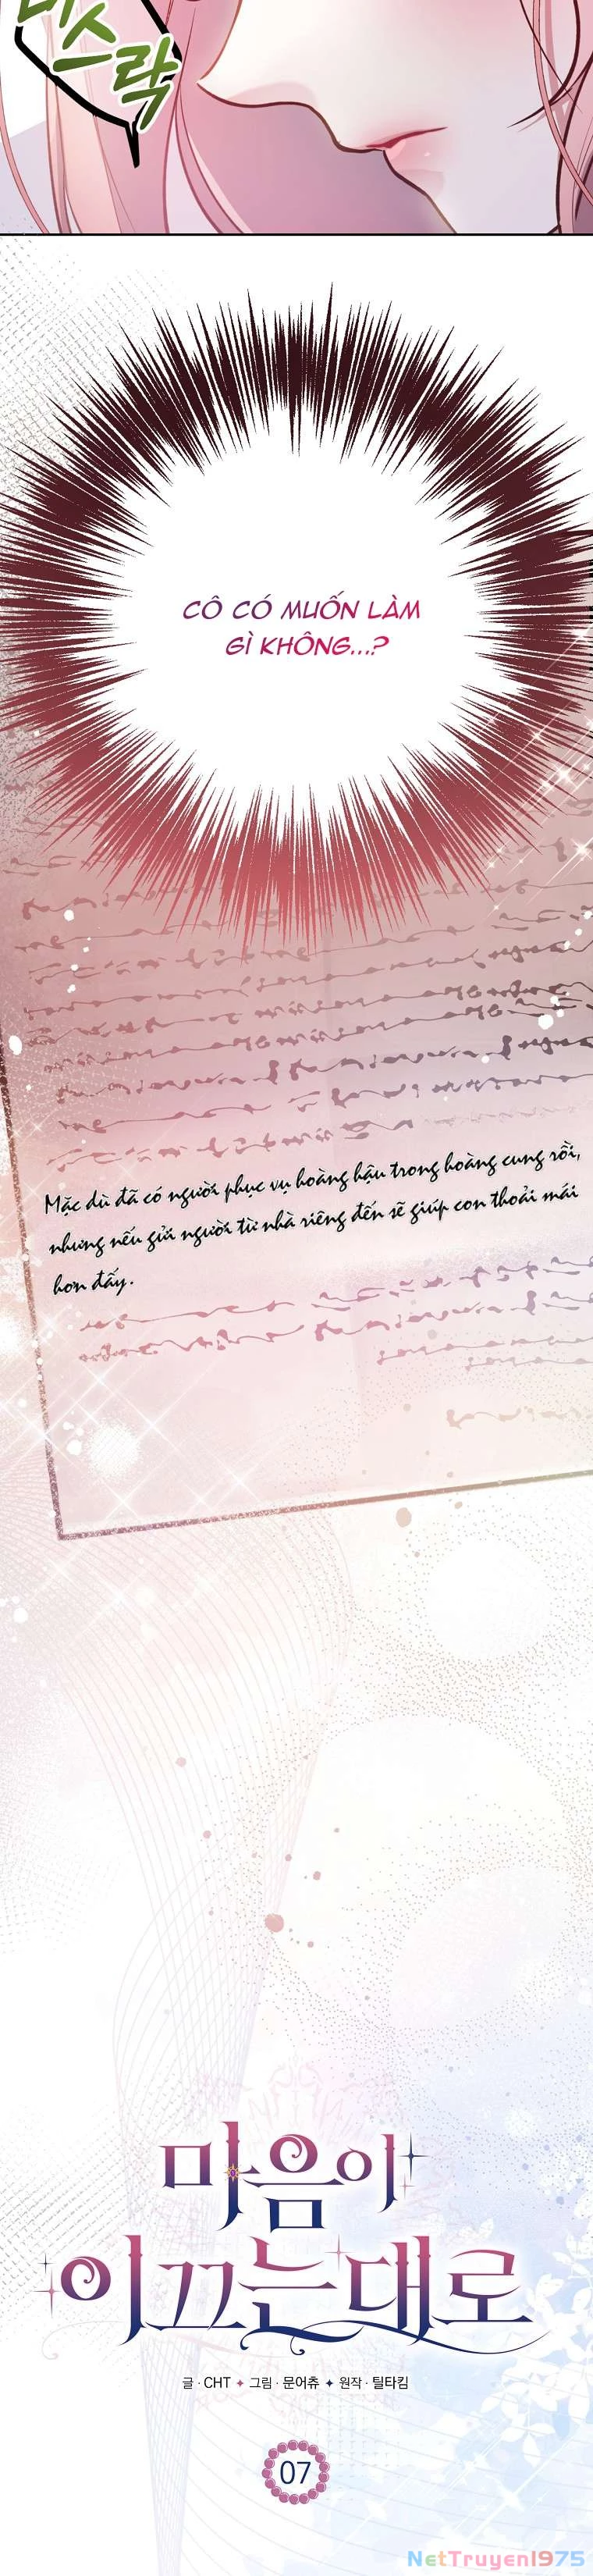 바스락
CÔ CÓ MUỐN LÀM
GÌ KHÔNG...?
Mặc dù đã có người phục vụ hoàng hậu trong hoàng cung rồi,
nhưng nếu gửi người từ nhà riêng đến sẽ giúp con thoải mái
hơn đấy.
마음이
이끄는 대로
글 · CHT ✦ 그림 · 문어츄 ✦ 원작 · 틸타킴
07
NetTruyen1975